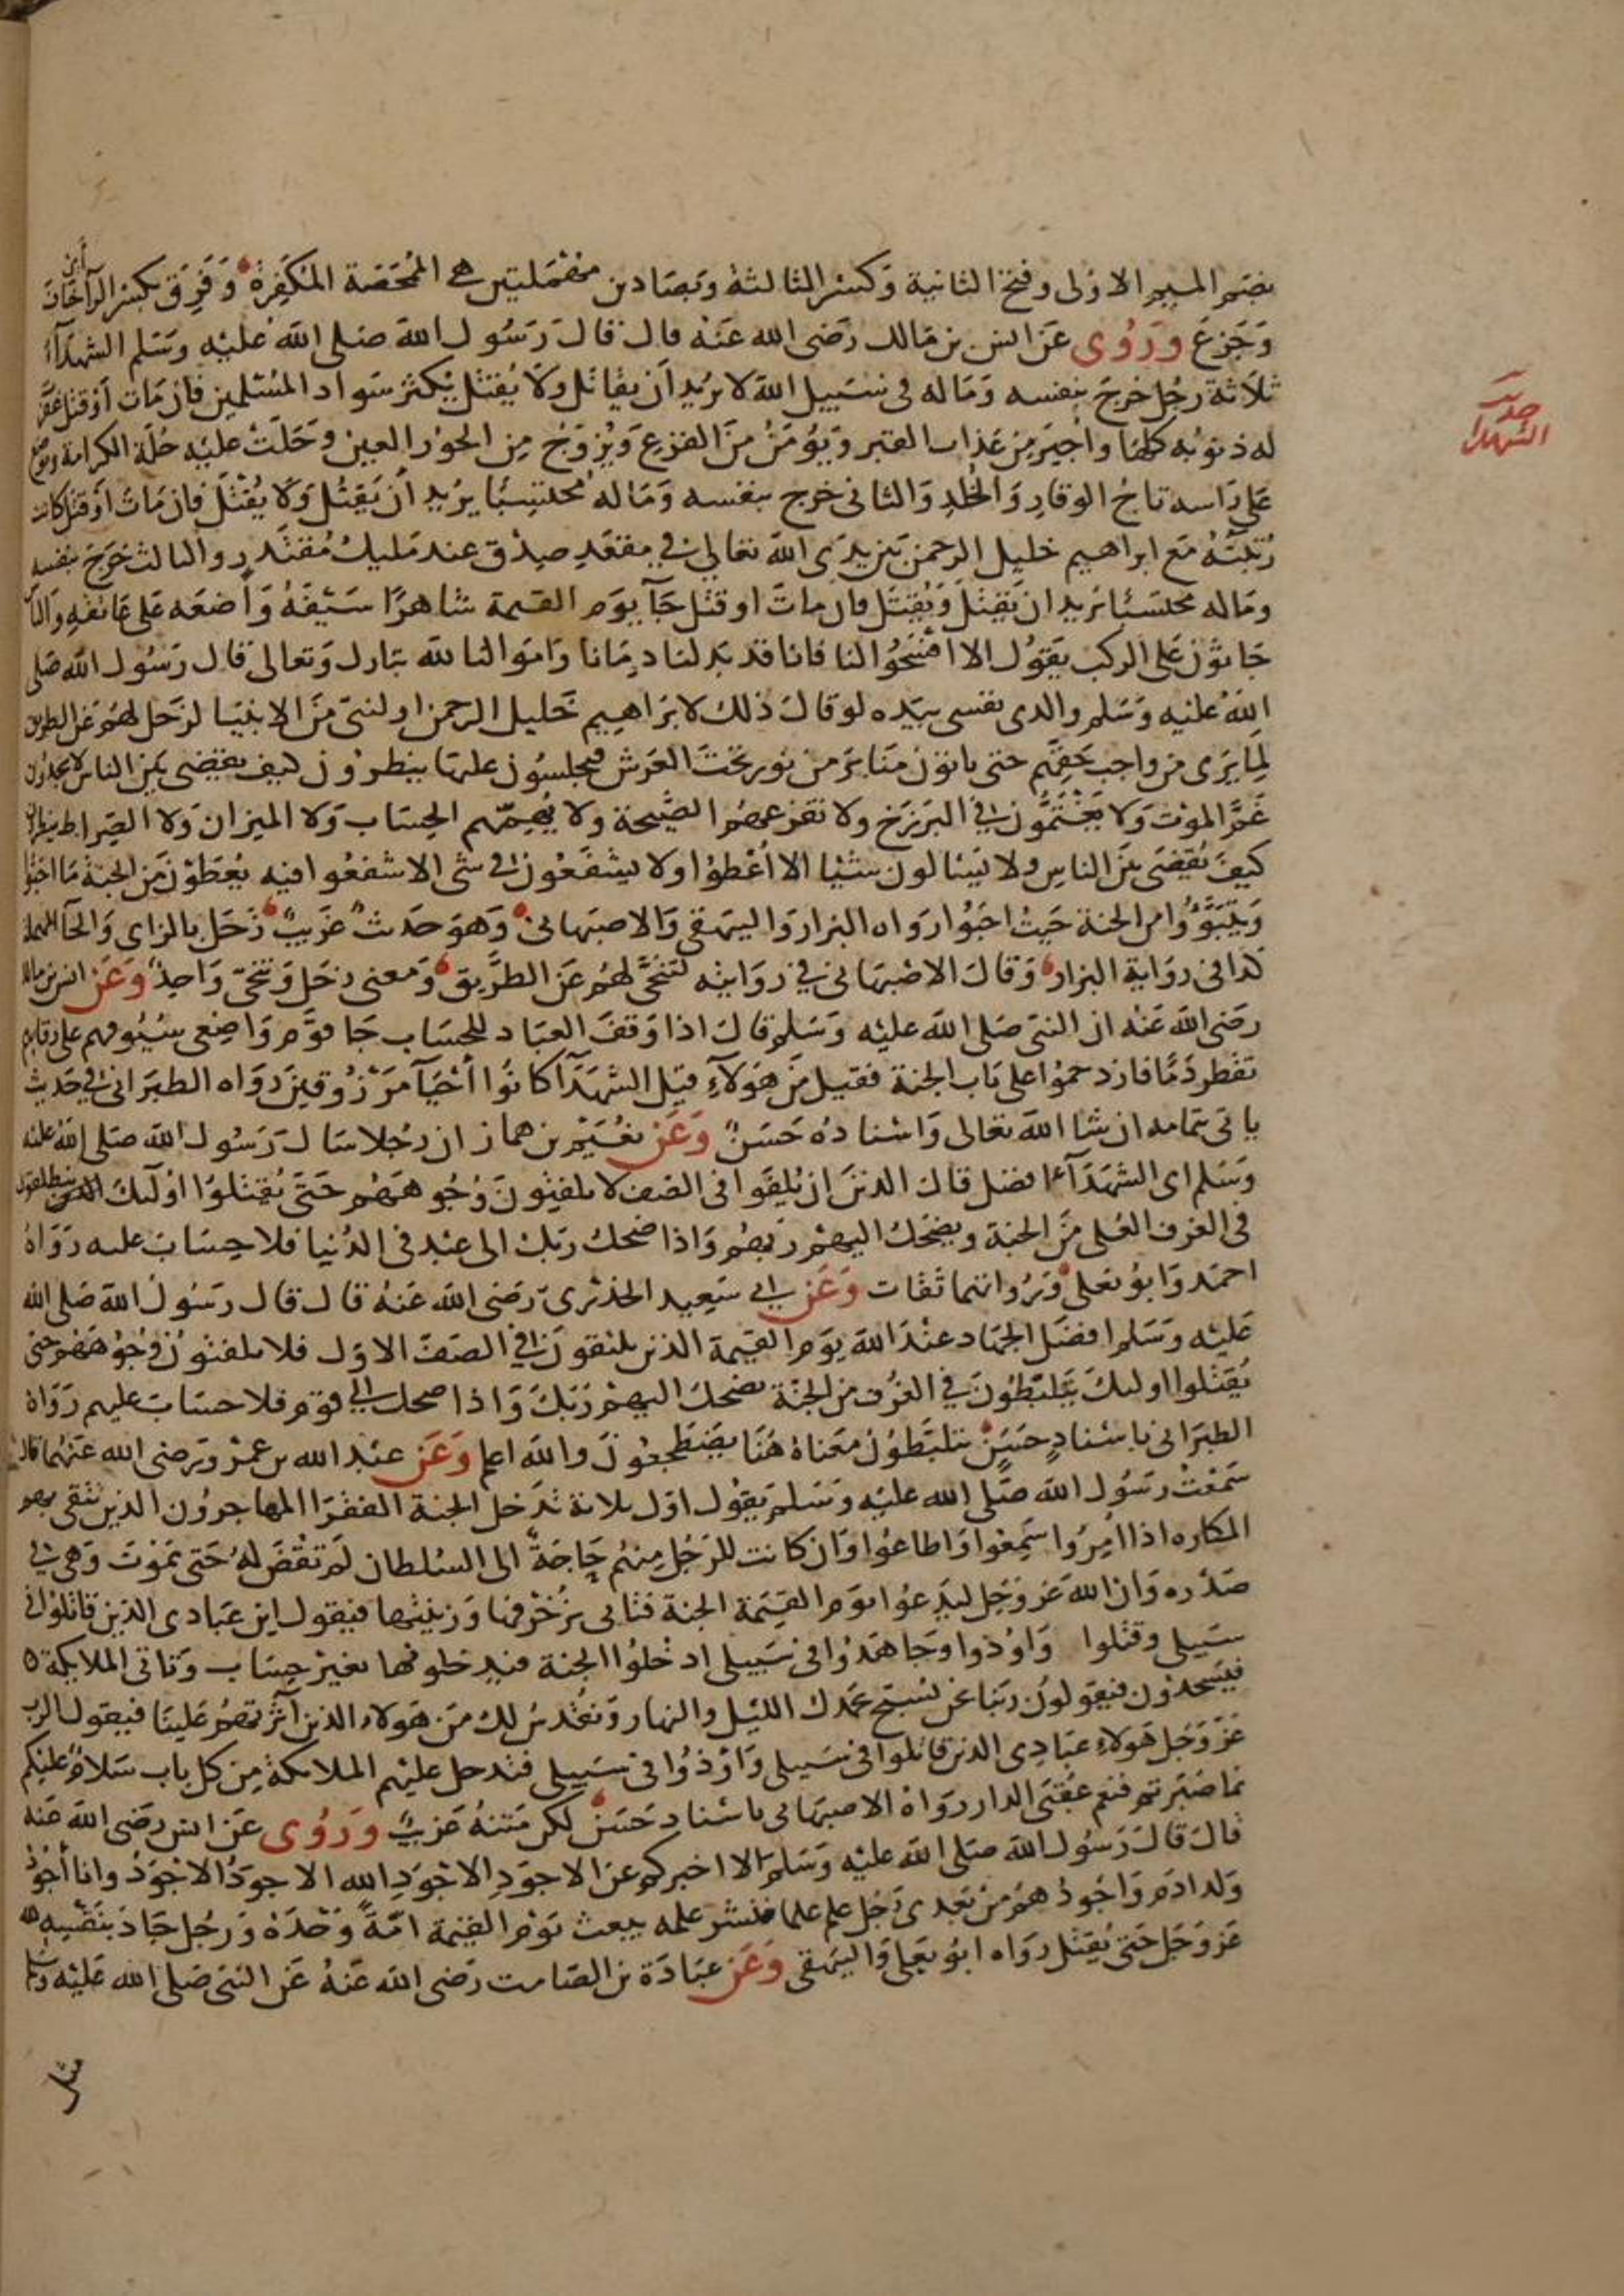 بضم الميم الاولى وفتح الثانية وكسر الثالثة وبصادين مهملتين هي الممحصة المكفرة وفرق بكسر الرآ اي خاف
وجزع وروى عن انس بن مالك رضى الله عنه قال قال رسول الله صلى الله عليه وسلم الشهدآء
حديث
الشهدا
ثلاثة رجل خرج بنفسه وماله في سبيل الله لا يريد ان يقاتل ولا يقتل يكثر سواد المسلمين فان مات او قتل غفرت
له ذنوبه كلها واجير من عذاب القبر ويؤمن من الفزع ويزوج من الحور العين وحلت عليه حلة الكرامة ويوضع
على راسه تاج الوقار والخلد والثانى خرج بنفسه وماله محتسبا يريد ان يقتل ولا يقتل فان مات او قتل كانت
ركبته مع ابراهيم خليل الرحمن بين يدى الله تعالى في مقعد صدق عند مليك مقتدر والثالث خرج بنفسه
وماله محتسبا يريد ان يقتل ويقتل فان مات او قتل جآ يوم القيمة شاهرا سيفه واضعه على عاتقه والناس
جاثون على الركب يقول الا افسحوا لنا فانا قد بذلنا دمانا واموالنا لله تبارك وتعالى قال رسول الله صلى
الله عليه وسلم والذى نفسى بيده لو قال ذلك لابراهيم خليل الرحمن او لنبي من الانبيا لزحل لهم عن الطريق
لما يرى من واجب حقهم حتى ياتون منابر من نور تحت العرش فيجلسون عليها ينظرون كيف يقضى بين الناس لا يجدون
غم الموت ولا يغتمون في البرزخ ولا تفزعهم الصيحة ولا يهمهم الحساب ولا الميزان ولا الصراط ينظرون
كيف يقضى بين الناس ولا يسالون شيا الا اعطوا ولا يشفعون في شى الا شفعوا فيه يعطون من الجنة ما احبوا
ويتبوؤا من الجنة حيث احبوا رواه البزار والبيهقى والاصبهانى وهو حديث غريب زحل بالزاى والحآ المهملة
كذا في رواية البزار وقال الاصبهانى في روايته لتنحى لهم عن الطريق ومعنى زحل وتنحى واحد وعن انس بن مالك
رضى الله عنه ان النبي صلى الله عليه وسلم قال اذا وقف العباد للحساب جا قوم واضعى سيوفهم على رقابهم
تقطر دما فازدحموا على باب الجنة فقيل من هولآء قيل الشهدآ كانوا احيآ مرزوقين رواه الطبرانى في حديث
ياتى بتمامه ان شا الله تعالى واسناده حسن وعن نعيم بن همار ان رجلا سال رسول الله صلى الله عليه
وسلم اى الشهدآء افضل قال الذين ان يلقوا في الصف لا يلفتون وجوههم حتى يقتلوا اولئك ينطلقون
في الغرف العلى من الجنة ويضحك اليهم ربهم واذا ضحك ربك الى عبد في الدنيا فلا حساب عليه رواه
احمد وابو يعلى ورواتهما ثقات وعن ابي سعيد الخدرى رضى الله عنه قال قال رسول الله صلى الله
عليه وسلم افضل الجهاد عند الله يوم القيمة الذين يلتقون في الصف الاول فلا يلفتون وجوههم حتى
يقتلوا اولئك يتلبطون في الغرف من الجنة يضحك اليهم ربك واذا ضحك الى قوم فلا حساب عليهم رواه
الطبرانى باسناد حسن يتلبطون معناه هنا يضطجعون والله اعلم وعن عبد الله بن عمرو رضى الله عنهما قال
سمعت رسول الله صلى الله عليه وسلم يقول اول ثلاثة تدخل الجنة الفقرا المهاجرون الذين تتقى بهم
المكاره اذا امروا سمعوا واطاعوا وان كانت للرجل منهم حاجة الى السلطان لم تقض له حتى يموت وهى في
صدره وان الله عز وجل ليدعوا يوم القيمة الجنة فتاتى بزخرفها وزينتها فيقول اين عبادى الذين قاتلوا في
سبيلى وقتلوا واوذوا وجاهدوا في سبيلى ادخلوا الجنة فيدخلونها بغير حساب وتاتى الملايكة ه
فيسجدون فيقولون ربنا نحن نسبح بحمدك الليل والنهار ونقدس لك من هولاء الذين آثرتهم علينا فيقول الرب
عز وجل هولاء عبادى الذين قاتلوا في سبيلى واوذوا في سبيلى فتدخل عليهم الملائكة من كل باب سلام عليكم
بما صبرتم فنعم عقبى الدار رواه الاصبهانى باسناد حسن لكن متنه غريب وروى عن انس رضى الله عنه
قال قال رسول الله صلى الله عليه وسلم الا اخبركم عن الاجود الاجود الله الاجود الاجود وانا اجود
ولد ادم واجودهم من بعدى رجل علم علما فنشر علمه يبعث يوم القيمة امة وحده ورجل جاد بنفسه لله
عز وجل حتى يقتل رواه ابو يعلى والبيهقى وعن عبادة بن الصامت رضى الله عنه عن النبي صلى الله عليه وسلم